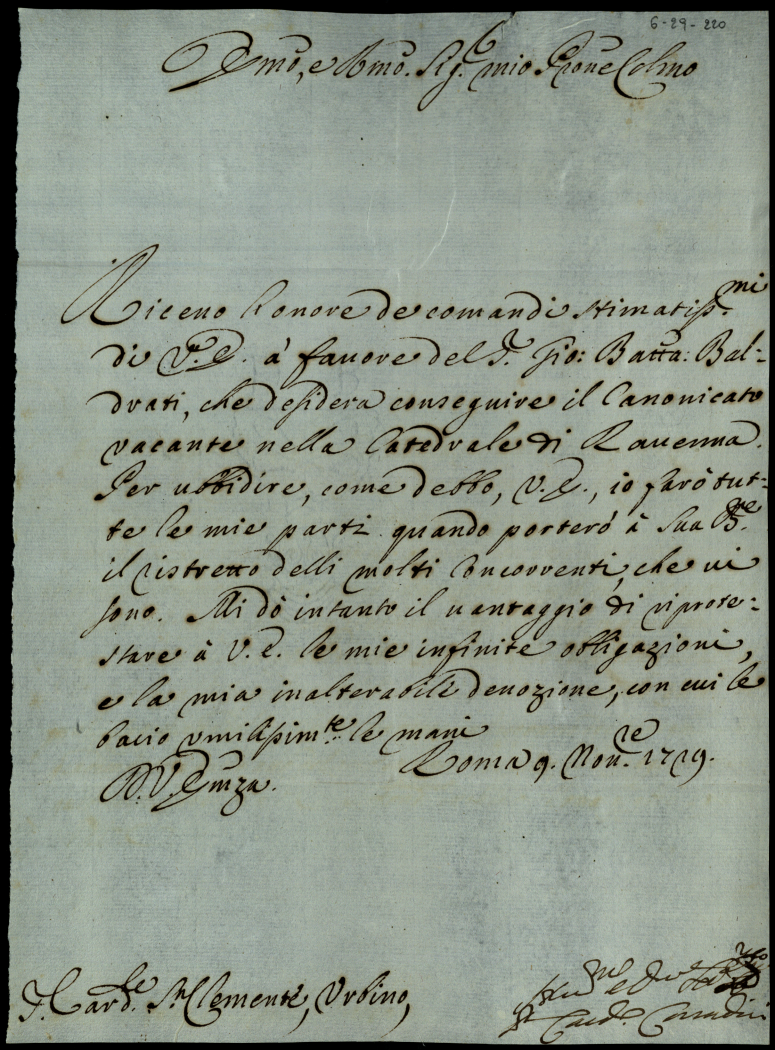 6-29-220
Emo, e Rmo. Sig.r mio Prone Colmo
Riceuo l'onore de comandi stimatiss.mi
di V.E. à fauore del S. Gio: Batta: Bal=
drati, che desidera conseguire il Canonicato
vacante nella Catedrale di Rauenna.
Per ubbidire, come debbo, V.E., io farò tut=
te le mie parti quando porterò à Sua B.ne
il ristretto delli molti Concorrenti, che ui
sono. Mi dò intanto il uantaggio di riprote=
stare à V.E. le mie infinite obbligazioni,
e la mia inalterabile deuozione, con cui le
bacio umilissim.te le mani
Roma 9. Nou.re 1719.
D. V. Emza.
S. Card.le S. Clemente, Urbino,
Card.